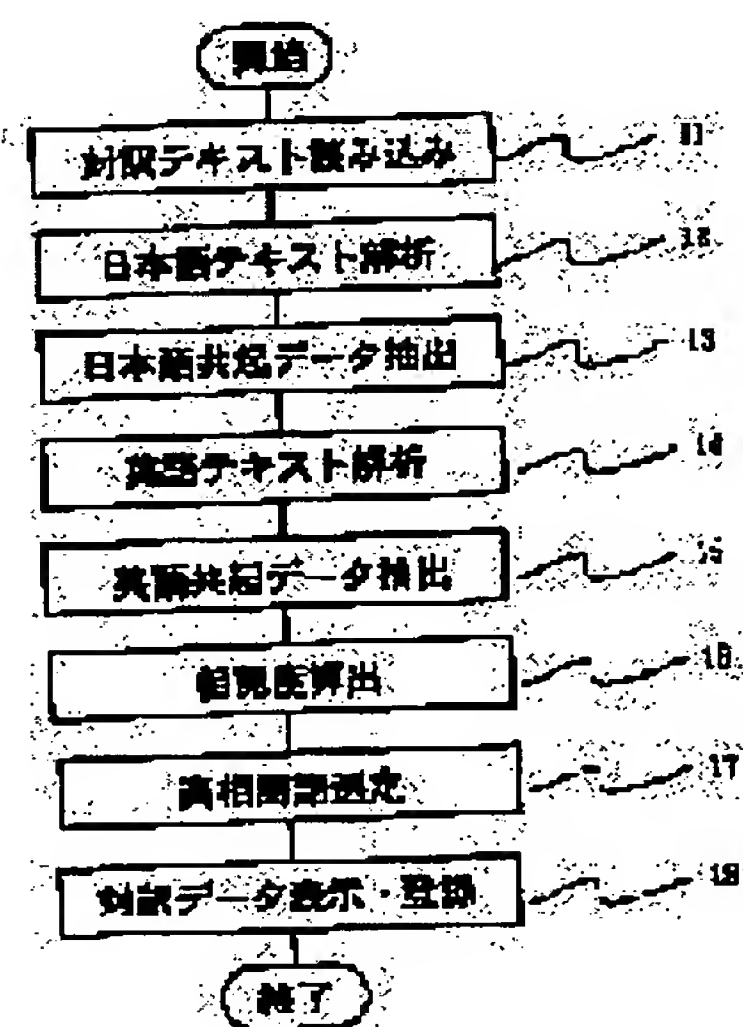 開始
対訳テキスト読み込み 11
日本語テキスト解析 12
日本語共起データ抽出 13
英語テキスト解析 14
英語共起データ抽出 15
相関度算出 16
高相関語選定 17
対訳データ表示・登録 18
終了